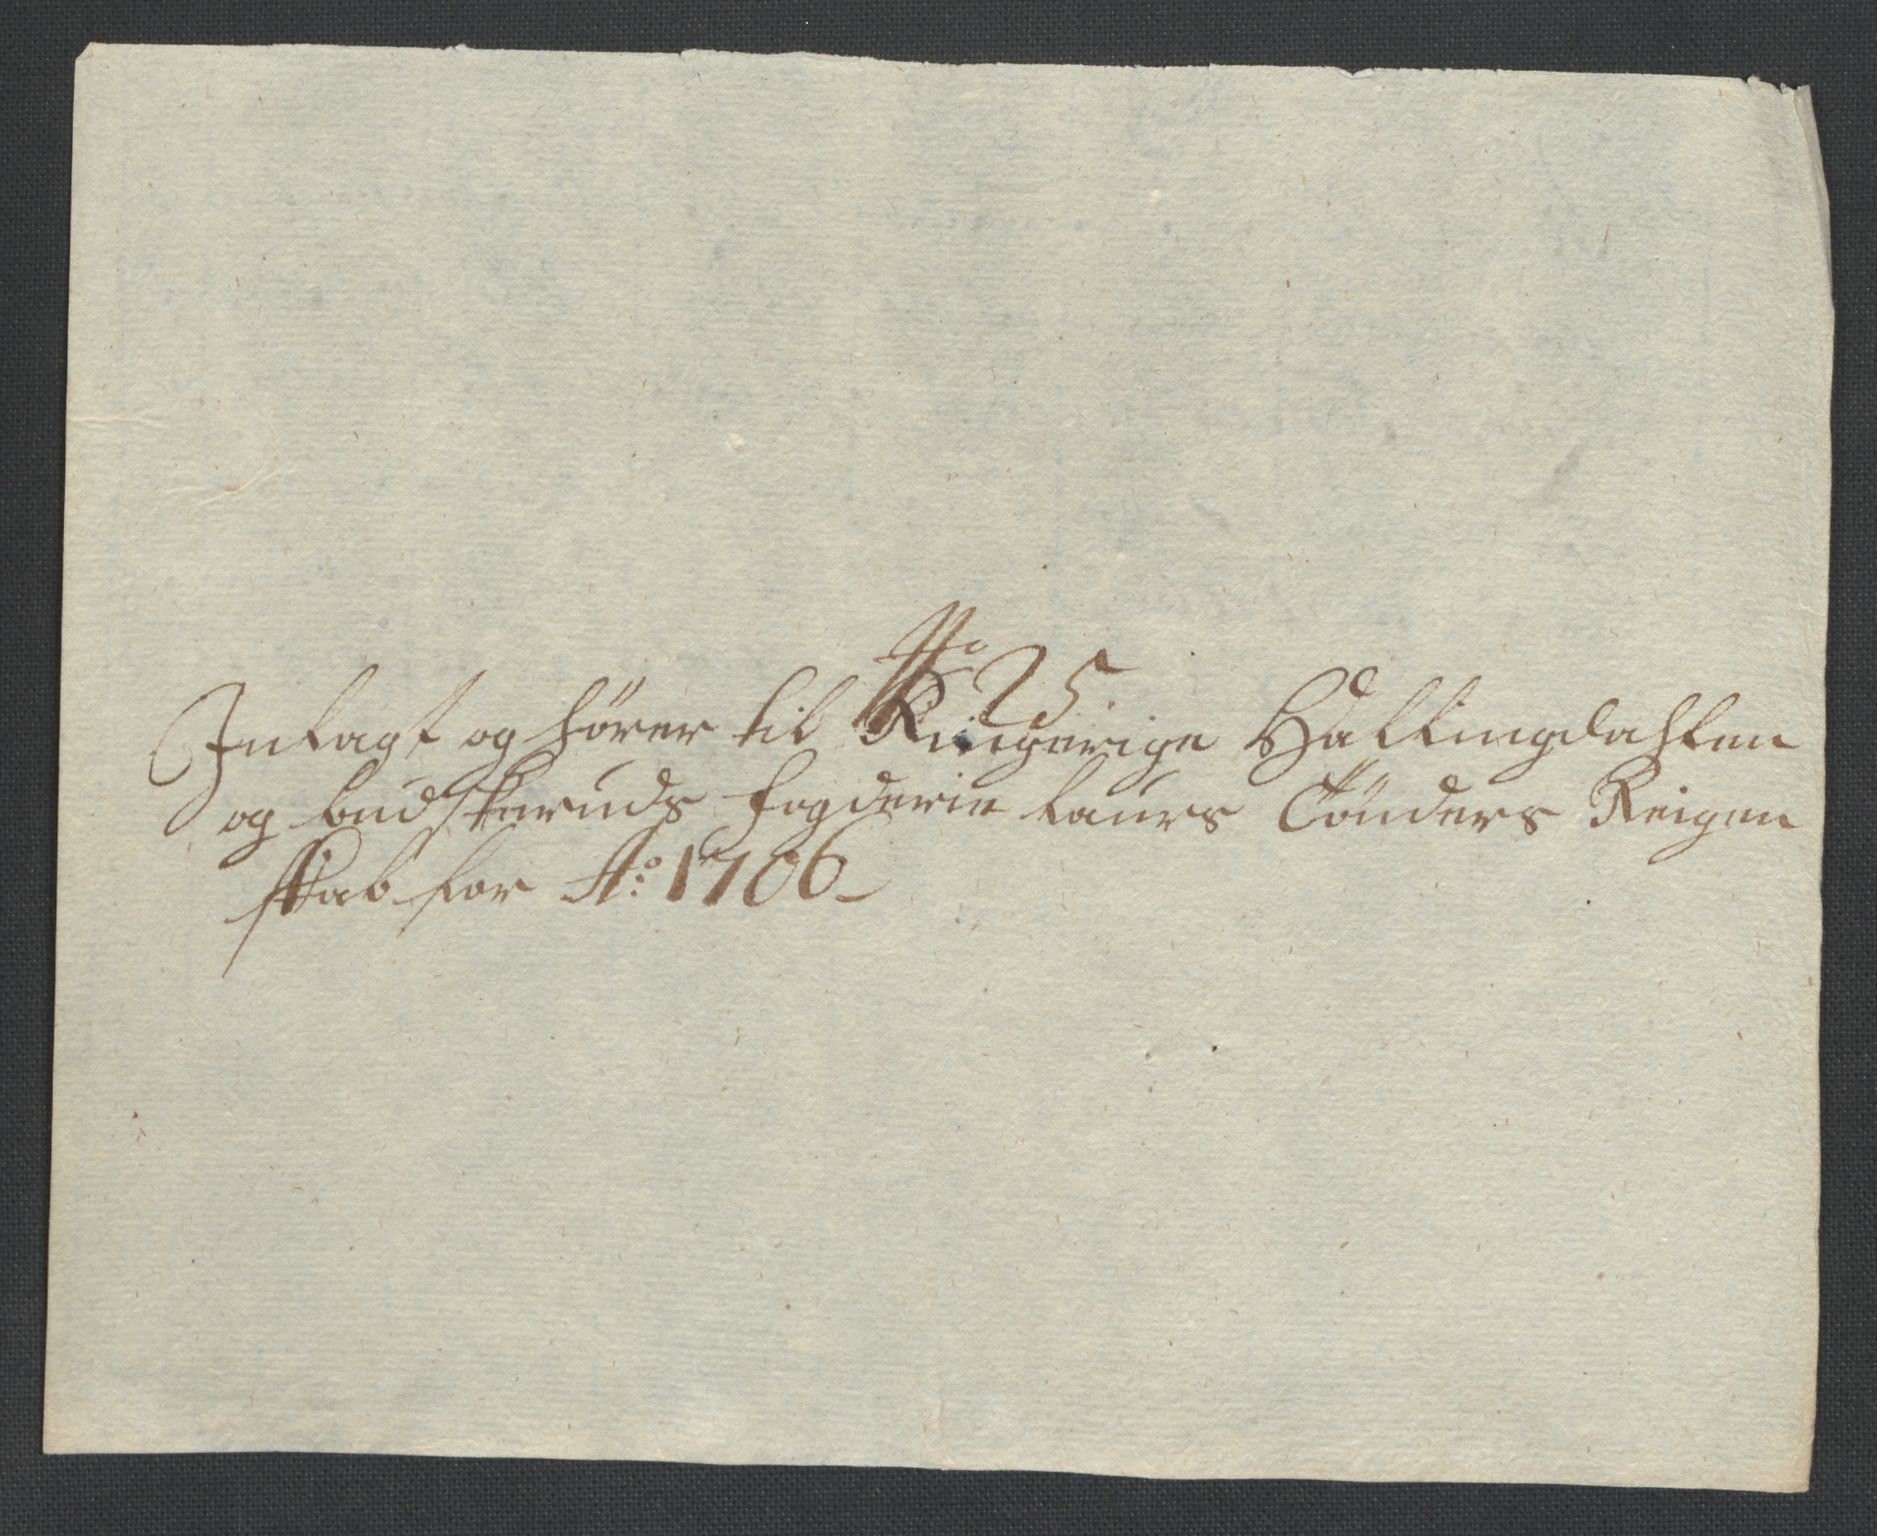 No 25
Inlagt og hører til Ringerige Hallingdahlen
og budskeruds fogderie laurs Tønders Reigen
skab for Ao: 1706